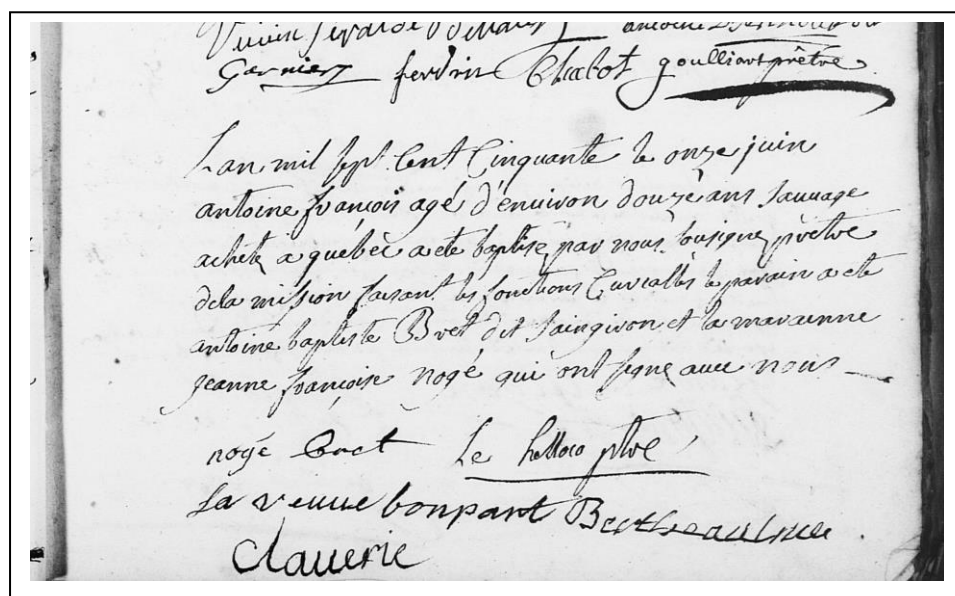 antoine
Garnier ferdrin Chabot goulliart prêtre
Lan mil sept Cent Cinquante le onze juin
antoine françois agé d'enuiron douze ans sauuage
acheté a quebec a ete baptisé par nous sousigné prêtre
dela mission faisant les fonctions Curialles le parain a ete
antoine baptiste Bret dit saingivon et la maraenne
jeanne françoise nogé qui ont signé auec nous
nogé Bret Le helloco ptre
la veuue bonpart
Clauerie